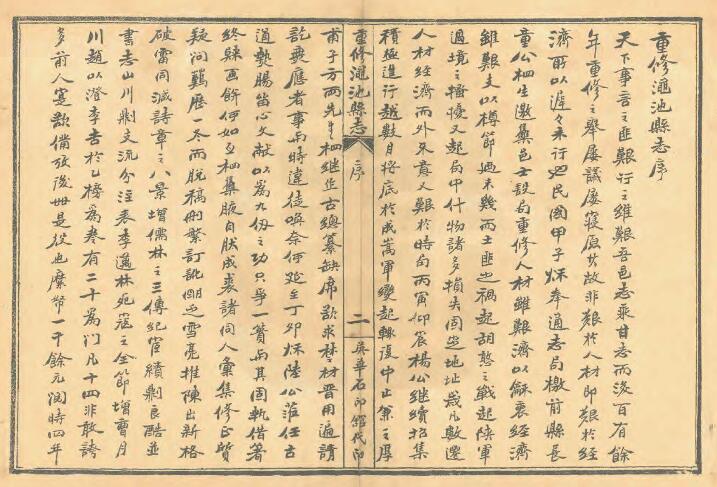 重修澠池縣志序
天下事言之匪艱行之維艱吾邑志乘甘志而後百有餘
年重修之舉屢議屢寢原其故非艱於人材即艱於經
濟所以遲々未行也民國甲子秋奉通志局檄前縣長
童公栖生邀集邑士設局重修人材雖艱濟以龢衷經濟
雖艱支以樽節廼未幾而土匪之禍起胡憨之戰起陝軍
過境之搔擾又起局中什物諸多損失固坐地址歲凡數遷
人材經濟而外又貴人艱於時局丙寅仰宸楊公繼續招集
積極進行越數月將底於成嵩軍變起輒復中止兼之厚
甫子方兩先生相繼作古總纂缺席欲求楚材晉用遍請
訖靡應者事與時違徒喚奈何延至丁卯秋陸公蒞任古
道熱腸留心文獻以為九仞之功只爭一簣而其固執借箸
終歸畫餅何如多栖集腋自狀成裘諸同人彙集修正質
疑問難歷一冬而脫稿刪繁訂訛朗之雪亮推陳出新格
破雷同減詩章之八景增儒林之三傳紀宦績剔良酷並
書志山川剿支流分注表季邁林宛寇之全節增曹月
川趙以澄李吉於乙榜為卷有二十為門凡十四非敢誇
多前人寔欲備攷後世是役也糜幣一千餘元閱時四年
重修澠池縣志
序
二
英華石印館代印